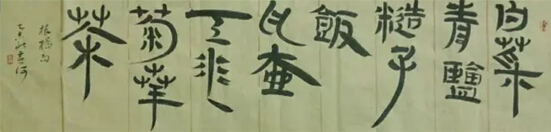 白菜
青鹽
糙子
飯
瓦壺
天水
菊華
茶
板橋句